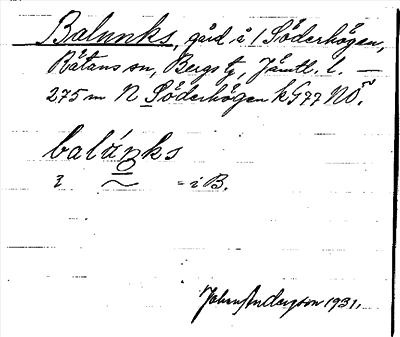 Balunks, gård i Söderhögen,
Rätans sn, Bergs tg, Jämtl. l. —
275 m N Söderhögen kG 77 NO.
baláŋks
i B.
John Anderson 1931.